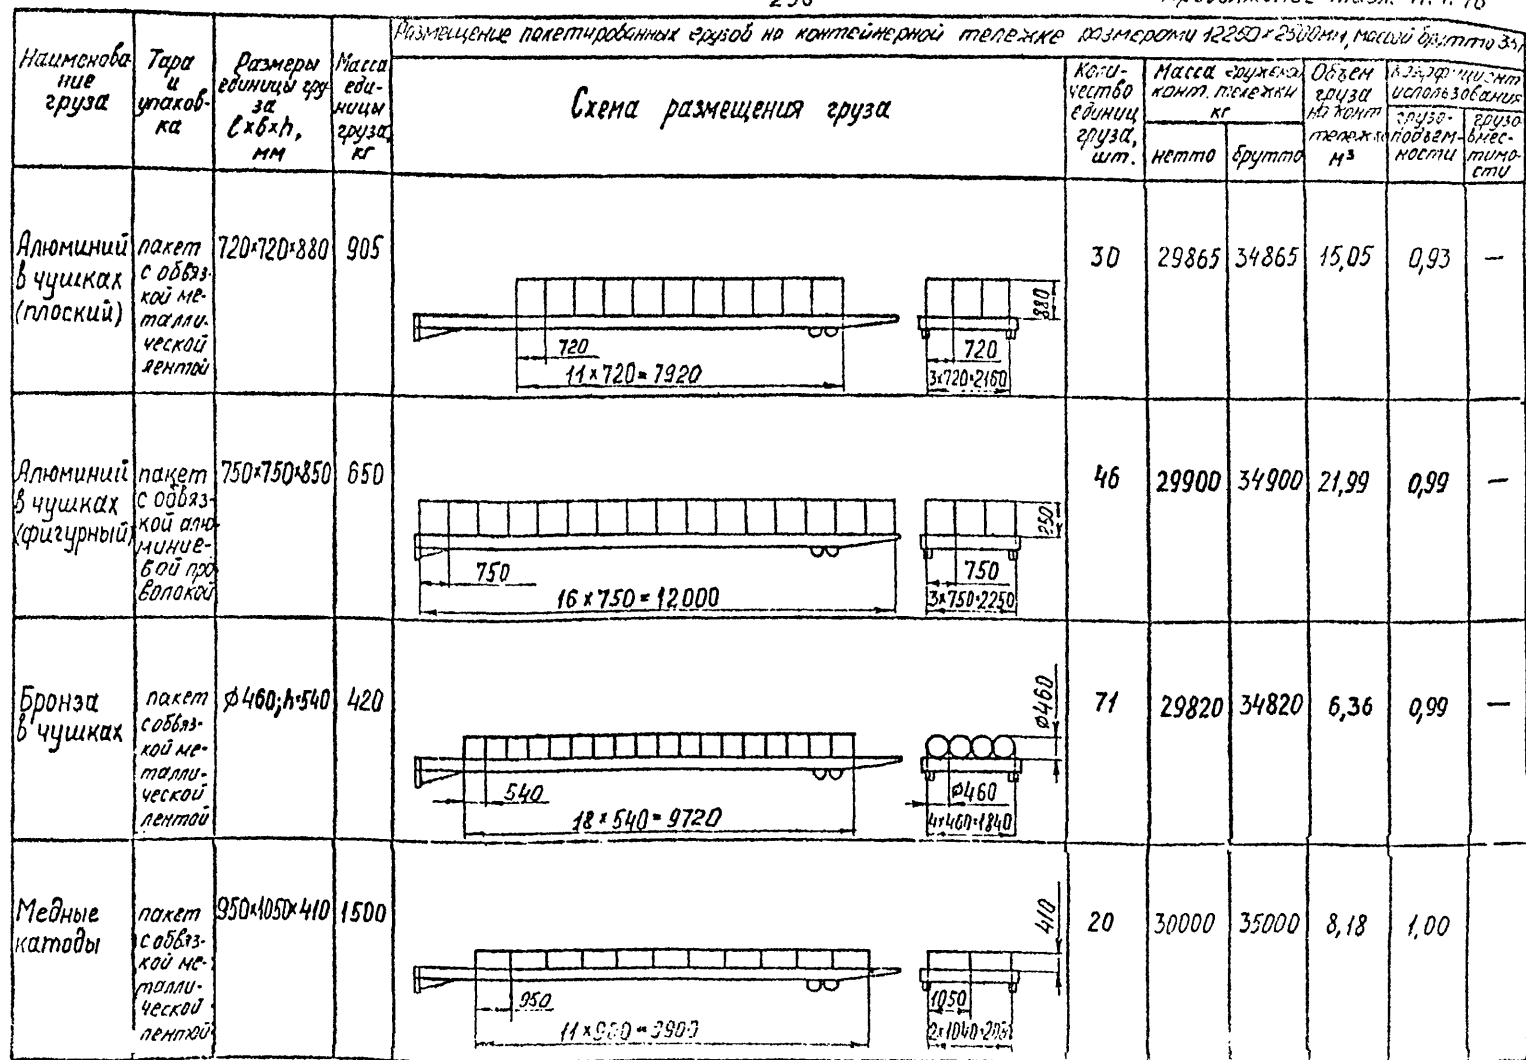 Размещение пакетированных грузов на контейнерной тележке размерами 12250×2500мм, массой брутто 35т
Наименова
ние
груза
Тара
и
упаков-
ка
Размеры
единицы гру
за
l×b×h,
мм
Масса
еди-
ницы
груза,
кг
Схема размещения груза
Коли-
чество
единиц
груза,
шт.
Масса гружёной
конт. тележки
кг
нетто
брутто
Объем
груза
на конт
тележке
м³
Коэффициент
использования
грузо-
подъем-
ности
грузо
вмес-
тимо-
сти
Алюминий
в чушках
(плоский)
пакет
с обвяз-
кой ме-
талли-
ческой
лентой
720×720×880
905
720
11×720=7920
880
720
3×720=2160
30
29865
34865
15,05
0,93
—
Алюминий
в чушках
(фигурный)
пакет
с обвяз-
кой алю-
миние-
вой про
волокой
750×750×850
650
750
16×750=12000
250
750
3×750=2250
46
29900
34900
21,99
0,99
—
Бронза
в чушках
пакет
с обвяз-
кой ме-
талли-
ческой
лентой
φ460;h=540
420
540
18×540=9720
φ460
φ460
4×460=1840
71
29820
34820
6,36
0,99
—
Медные
катоды
пакет
с обвяз-
кой ме-
талли-
ческой
лентой
950×1050×410
1500
950
410
1050
20
30000
35000
8,18
1,00